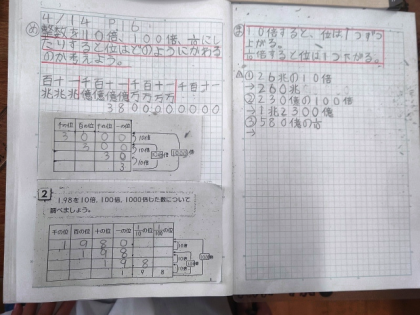 4/14 P.16
め 整数を10倍、100倍、1/10にし
たりすると位はどのようにかわる
のか考えよう。
百十一千百十一千百十一千百十一
兆兆兆億億億億万万万万
380000000000
千の位 百の位 十の位 一の位
3 0 0 0
3 0 0
3 0
3
10倍
10倍
10倍
2
198を10倍、100倍、1000倍した数について
調べましょう。
千の位 百の位 十の位 一の位 1/10の位 1/100の位
1 9 8 0
1 9 8
1 9 8
1 9 8
10倍
10倍
10倍
ま 10倍すると、位は1つずつ
上がる。
1/10倍すると位は1つ下がる。
①26兆の10倍
→260兆
②230億の100倍
→1兆2300億
③580億の1/10
→